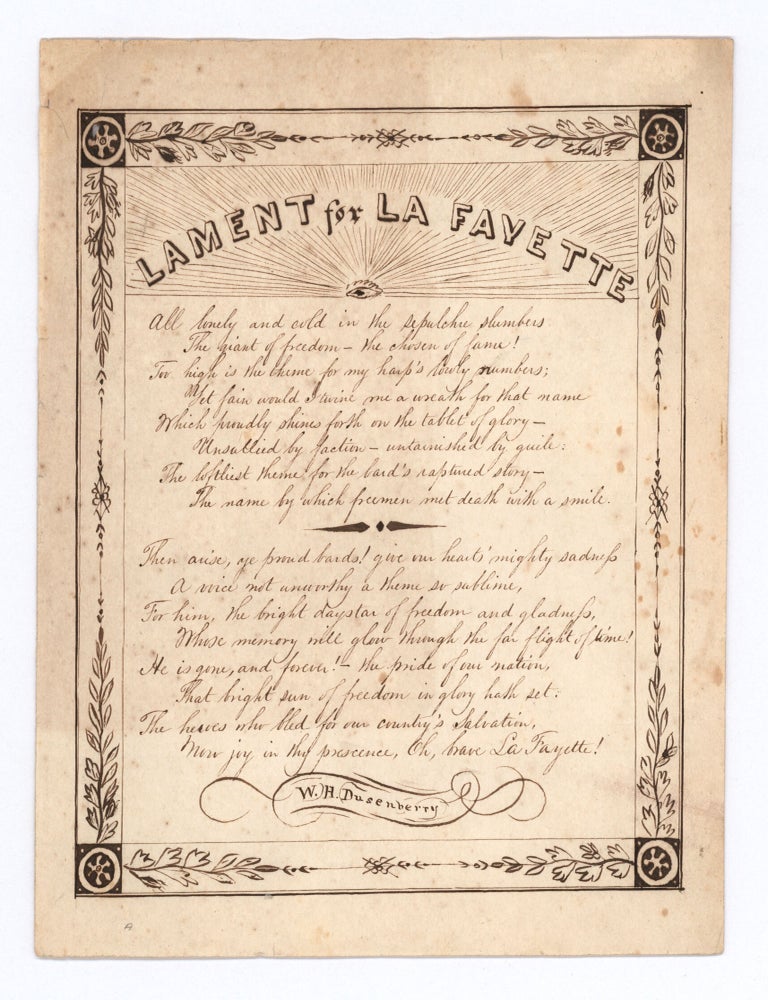 LAMENT for LA FAYETTE
All lonely and cold in the sepulchre slumbers
The giant of freedom – the chosen of fame!
Too high is the theme for my harp's lowly numbers;
Yet fain would I twine me a wreath for that name
Which proudly shines forth on the tablet of glory –
Unsullied by faction – untarnished by guile:
The loftliest theme for the bard's raptured story –
The name by which freemen met death with a smile.
Then arise, ye proud bards! give our hearts' mighty sadness
A voice not unworthy a theme so sublime,
For him, the bright daystar of freedom and gladness,
Whose memory will glow through the far flight of time!
He is gone, and forever! – the pride of our nation,
That bright sun of freedom in glory hath set:
The heroes who bled for our country's Salvation,
Now joy in thy prescence, Oh, brave La Fayette!
W. H. Dusenberry